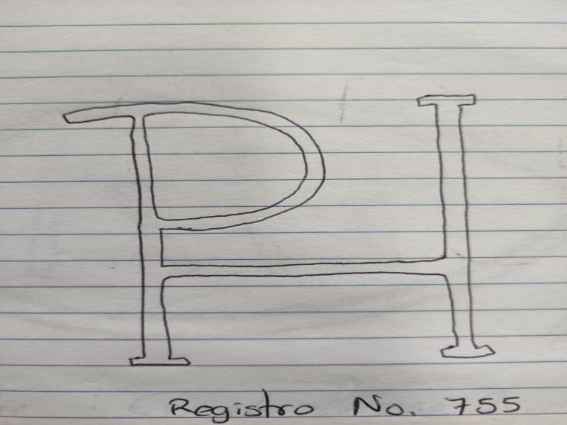 PH
Registro No. 755